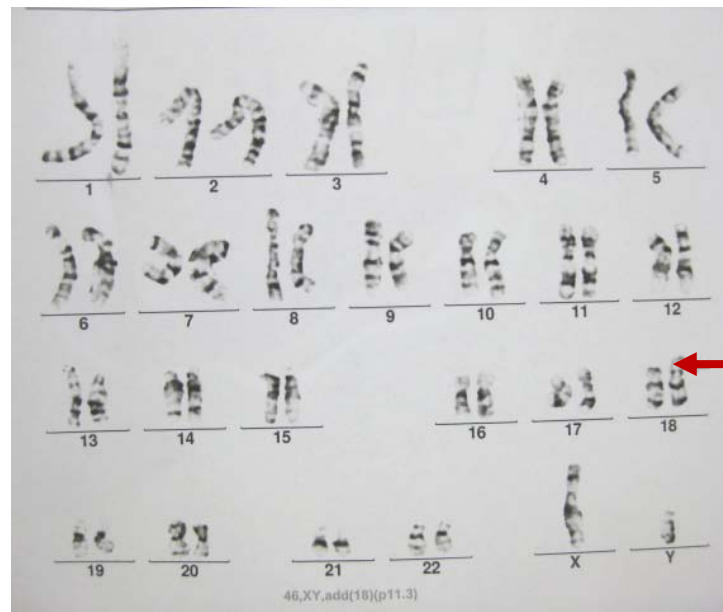 1 2 3 4 5
6 7 8 9 10 11 12
13 14 15 16 17 18
19 20 21 22 X Y
46,XY,add(18)(p11.3)